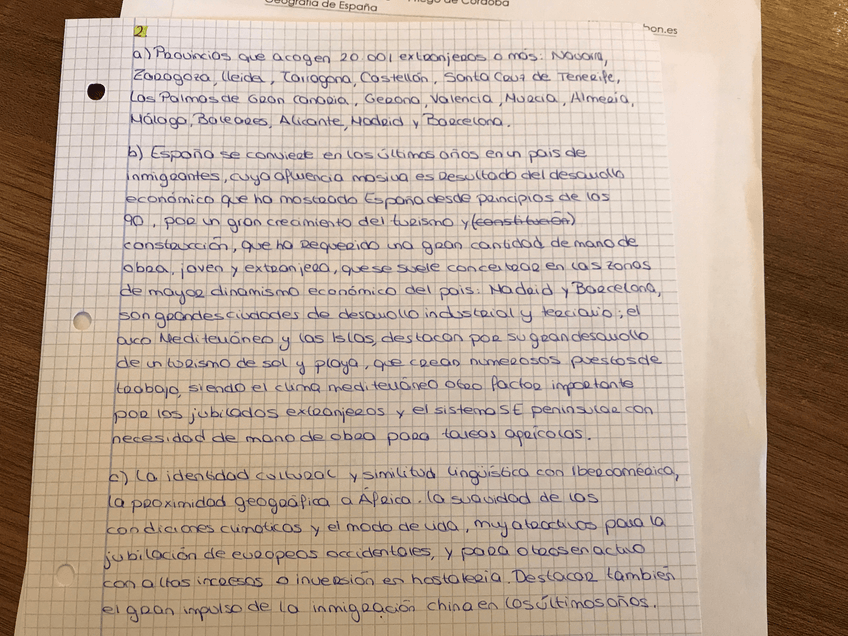 Geografía de España
de Córdoba
hon.es
2.
a) Provincias que acogen 20.001 extranjeros o más: Navarra,
Zaragoza, Lleida, Tarragona, Castellón, Santa Cruz de Tenerife,
Las Palmas de Gran Canaria, Gerona, Valencia, Murcia, Almería,
Málaga, Baleares, Alicante, Madrid y Barcelona.
b) España se convierte en los últimos años en un país de
inmigrantes, cuya afluencia masiva es resultado del desarrollo
económico que ha mostrado España desde principios de los
90, por un gran crecimiento del turismo y (constitución)
construcción, que ha requerido una gran cantidad de mano de
obra, joven y extranjera, que se suele concentrar en las zonas
de mayor dinamismo económico del país: Madrid y Barcelona,
son grandes ciudades de desarrollo industrial y terciario; el
arco Mediterráneo y las Islas, destacan por su gran desarrollo
de un turismo de sol y playa, que crean numerosos puestos de
trabajo, siendo el clima mediterráneo otro factor importante
por los jubilados extranjeros y el sistema SE peninsular con
necesidad de mano de obra para tareas agrícolas.
c) La identidad cultural y similitud lingüística con Iberoamérica,
la proximidad geográfica a África. La suavidad de las
condiciones climáticas y el modo de vida, muy atractivos para la
jubilación de europeos occidentales, y para otros en activo
con altos ingresos o inversión en hostelería. Destacar también
el gran impulso de la inmigración china en los últimos años.